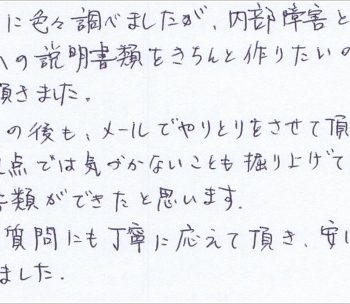 に色々調べましたが、内部障害と
の説明書類をきちんと作りたいの
頂きました。
の後も、メールでやりとりをさせて頂
点では気づかないことも掘り上げて
類ができたと思います。
質問にも丁寧に応えて頂き、安
ました。